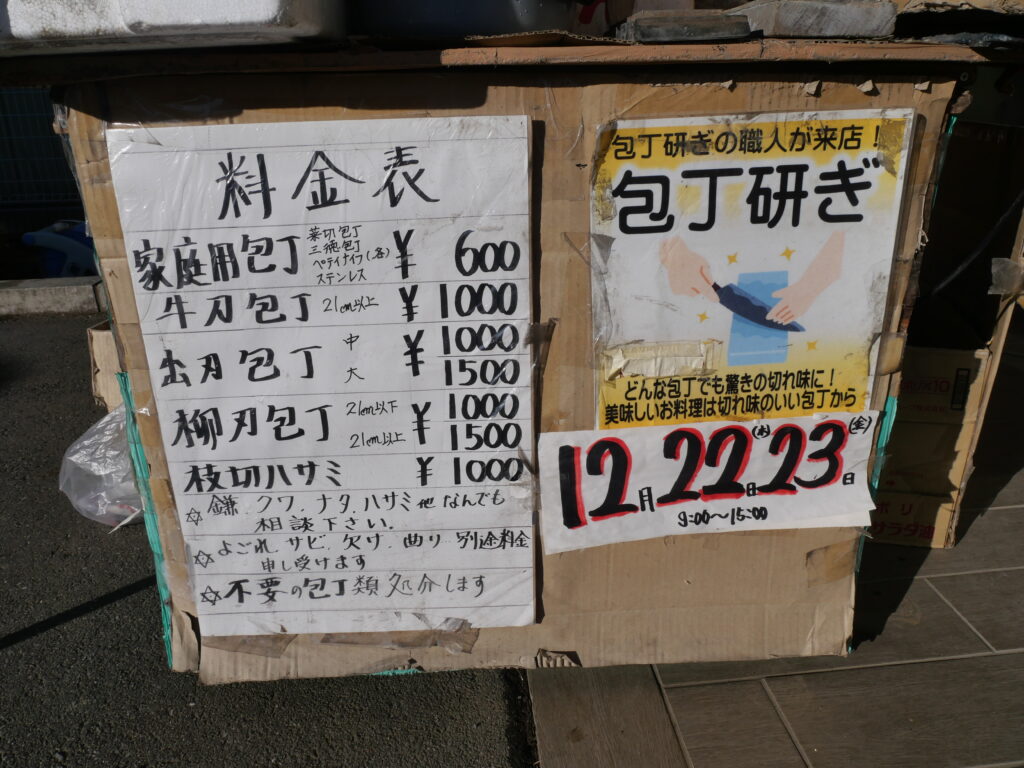 料金表
家庭用包丁 菜切包丁 三徳包丁 ペティナイフ(各) ステンレス ¥ 600
牛刃包丁 21cm以上 ¥ 1000
出刃包丁 中 ¥ 1000
大 1500
柳刃包丁 21cm以下 ¥ 1000
21cm以上 1500
枝切ハサミ ¥ 1000
☆ 鎌、クワ、ナタ、ハサミ他なんでも
相談下さい.
☆ よごれ、サビ、欠け、曲り、別途料金
申し受けます
☆ 不要の包丁類処分します
包丁研ぎの職人が来店!
包丁研ぎ
どんな包丁でも驚きの切れ味に!
美味しいお料理は切れ味のいい包丁から
12月22日(木)23日(金)
9:00〜15:00
サラダ油